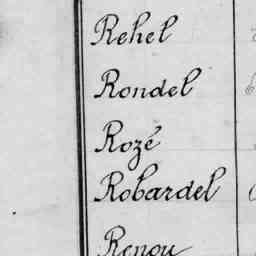 Rehel
Rondel
Rozé
Robardel
Renou